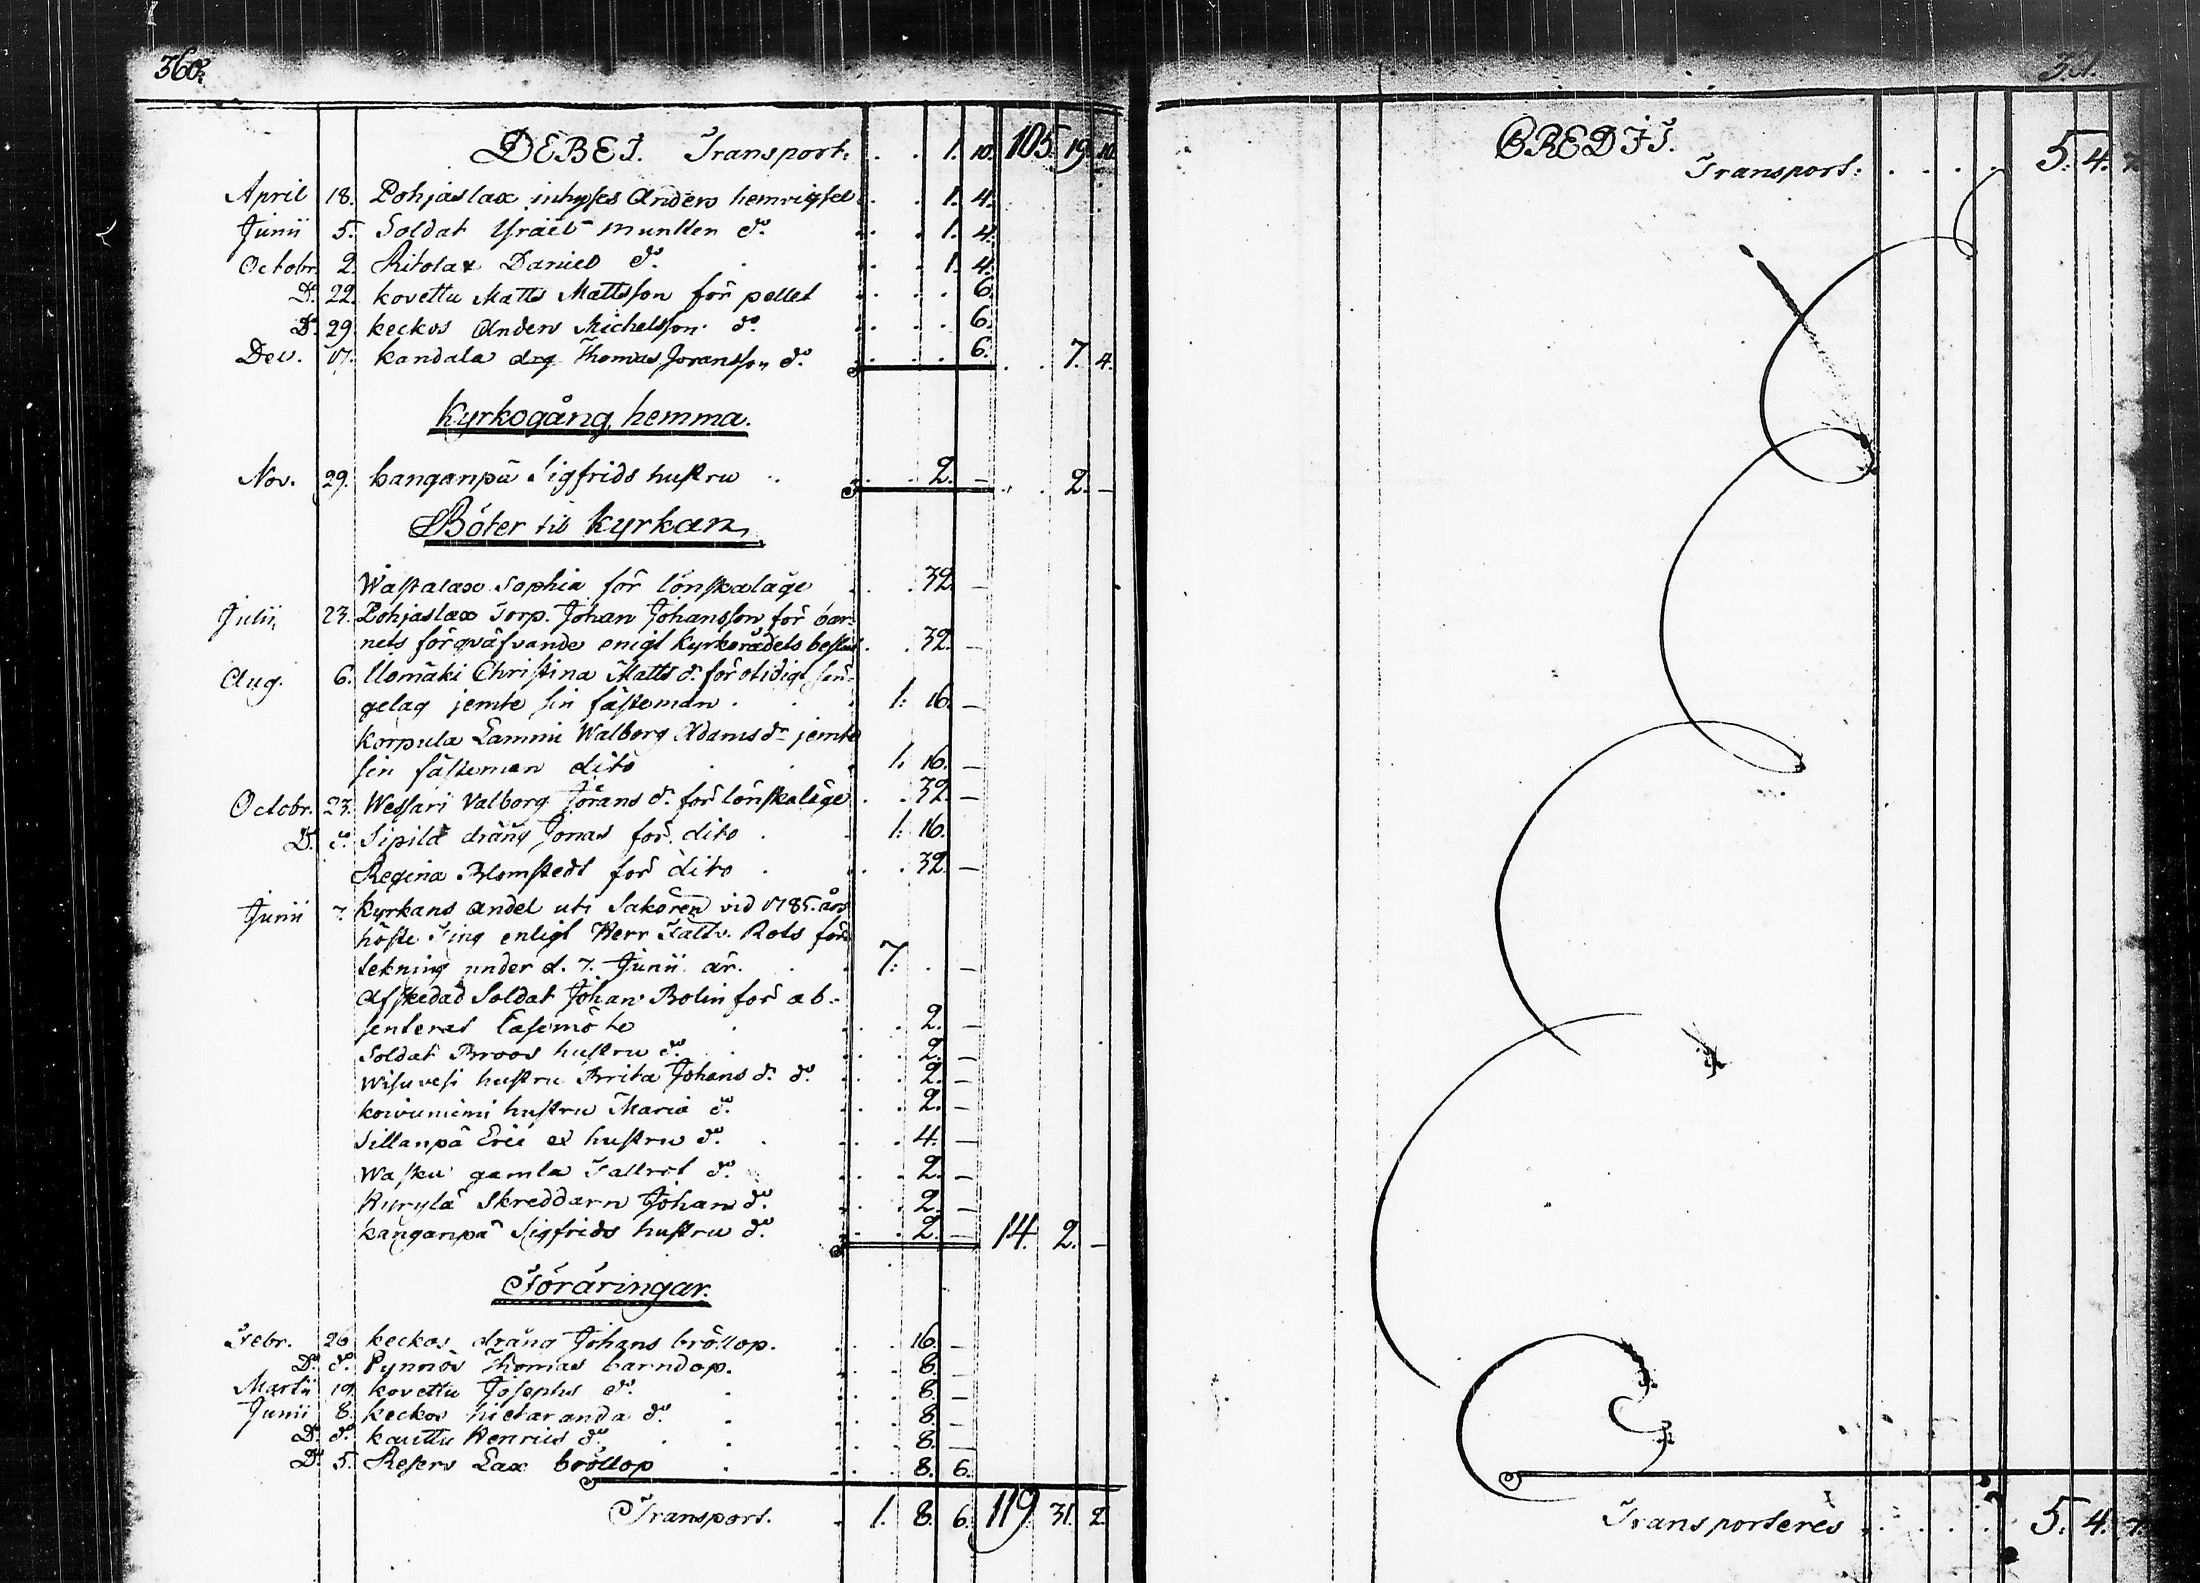 360.
DEBET. Transport. . . 1. 10. 105. 19. 10.
April 18. Pohjaslax inhyses Anders hemrigsel . . 1. 4.
Junii 5. Soldat Israel Munster do . . 1. 4.
Octobr. 2. Ritolax Daniel do . . 1. 4.
Do 22. kovettu Matts Mattsson för pellet . . . . 6.
Do 29. keckos Anders Michelsson do . . . . 6.
Dec. 17. kandala drg Thomas Joransson do . . . . 6. . . 7. 4.
Kyrkogång hemma.
Nov. 29. kanganpä Sigfrids hustru . . . . 2. — . . 2. —
Böter til Kyrkan.
Wästalax Sophia för lönskaläge . . 32. —
Julii 23. Pohjaslax Torp. Johan Johansson för bar-
nets förqväfvande enigt kyrkorådets beslut . . 32. —
Aug. 6. Uomäki Christina Matts dr för otidigt sän-
gelag jemte sin fästeman . . . 1. 16. —
korpula Lammi Walborg Adams dr jemte
sin fästeman dito . . . 1. 16. —
Octobr. 23. Wessari Valborg Jörans dr för lönskaläge . . 32. —
D. do Sipilä dräng Jonas för dito . . 1. 16.
Regina Blomstedt för dito . . . 32. —
Junii 7. Kyrkans andel uti Sakören vid 1785. års
höste Ting enligt Herr Fältv. Rots för-
tekning under d. 7. Junii år. . . 7. . —
Afskedad Soldat Johan Bolin for ab-
senteras Läsemöte . . . 2. —
Soldat Broos hustru do . . . 2. —
Wisuvesi hustru Brita Johans dr do . . . 2. —
koivuniemi hustru Maria do . . . 2. —
Sillanpä Eric et hustru do . . . 4. —
Wasku gamla Fallrot do . . . 2. —
Kyrylä Skreddarn Johan do . . . 2. —
kanganpä Sigfrids hustru do . . . 2. — 14. 2. —
Föräringar.
Febr. 26. keckos dräng Johans bröllop. . . . 16. —
Do do Pynnös Thomas barndop. . . . 8. —
Martii 19. kovettu Josephs do . . . 8. —
Junii 8. keckos hietaranda do . . . 8. —
Do do kauttu Henrics do . . . 8. —
Do 5. Resers Lax bröllop . . . 8. 6.
Transport. . 1. 8. 6. 119. 31. 2.
CREDIT.
Transport. . . . . 5. 4. 7.
Transporteres . . . . 5. 4. 7.